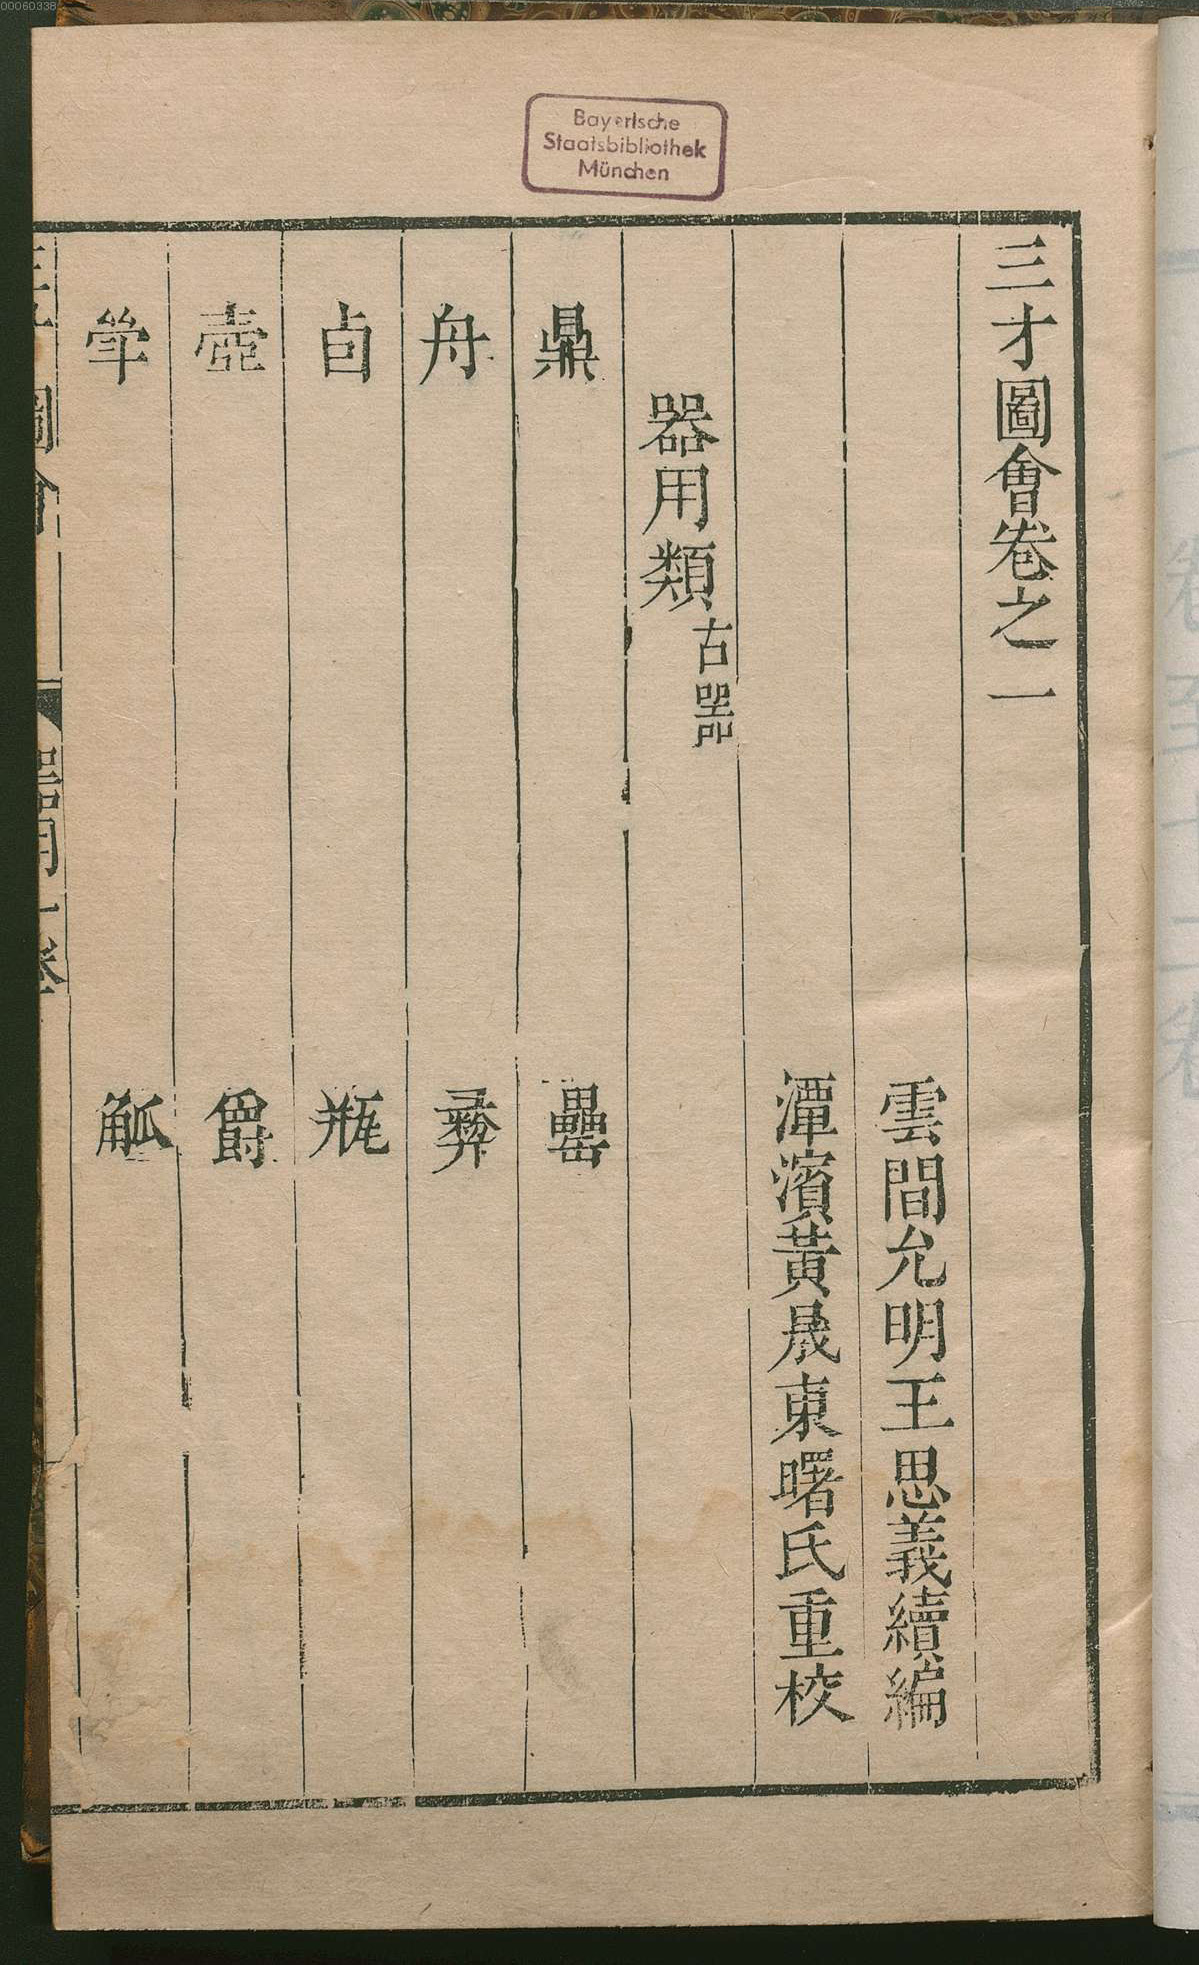 00060338
Bayerische
Staatsbibliothek
München
三才圖會卷之一
雲間允明王思義續編
潭濱黃晟東曙氏重校
器用類 古器
鼎 罍
舟 彝
卣 瓶
壺 爵
斝 觚
圖會 器用一卷